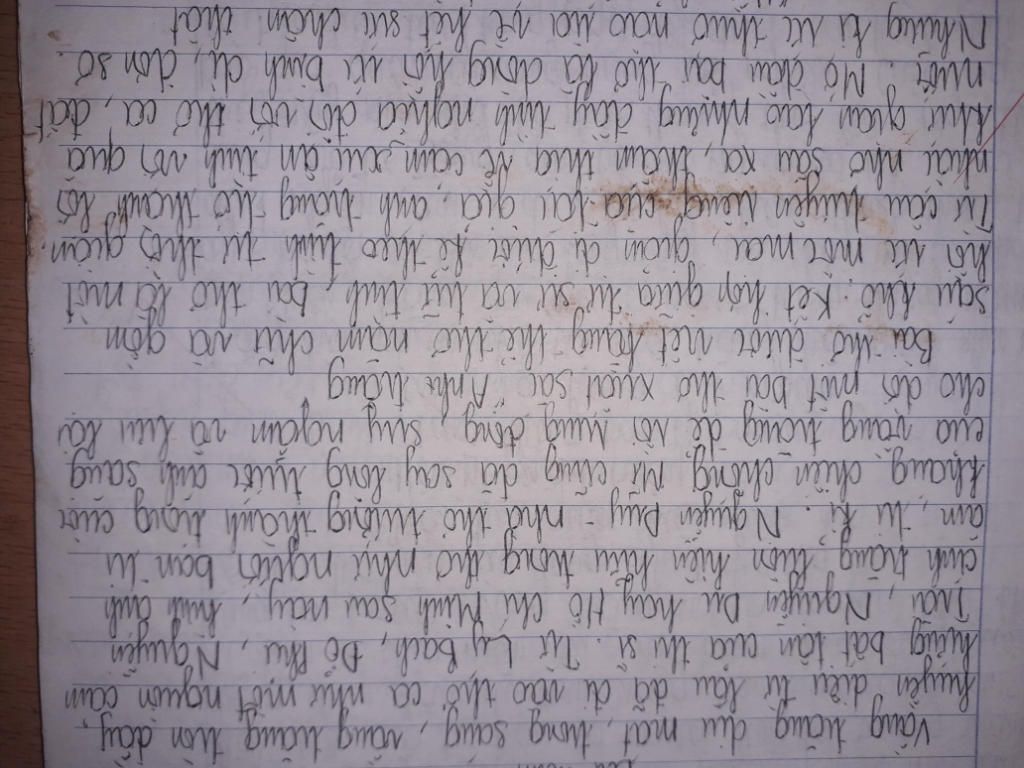 Vầng trăng dịu mát, trong sáng, vầng trăng tròn đầy,
huyền diệu từ lâu đã đi vào thơ ca như một nguồn cảm
hứng bất tận của thi sĩ. Từ Lý Bạch, Đỗ Phủ, Nguyễn
Trãi, Nguyễn Du hay Hồ Chí Minh sau này, hình ảnh
ánh trăng luôn hiện hữu trong thơ như người bạn tri
âm, tri kỉ. Nguyễn Duy - nhà thơ trưởng thành trong cuộc
kháng chiến chống Mĩ cũng đã say lòng trước ánh sáng
của vầng trăng để rồi rung động, suy ngẫm và lưu lại
cho đời một bài thơ xuất sắc "Ánh trăng
Bài thơ được viết bằng thể thơ năm chữ và gồm
sáu khổ. Kết hợp giữa tự sự và trữ tình, bài thơ là một
hồi ức miên man, giản dị được kể theo trình tự thời gian.
Từ câu chuyện riêng của tác giả, ánh trăng trở thành lời
nhắc nhở sâu xa, thấm thía về cảm xúc ân tình với quá
khứ gian lao nhưng đầy tình nghĩa đối với thơ ca, đất
nước. Mở đầu bài thơ là dòng hồi ức bình dị, đơn sơ.
Những kí ức thuở nào ùa về hết sức chân thật